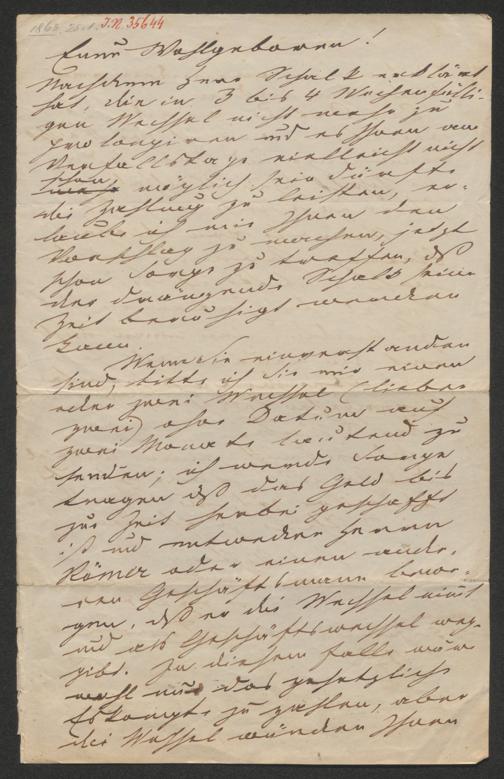 1868, 25/1. I.N. 35644
Euer Wohlgeboren!
Nachdem Herr Schalk erklärt
hat, die in 3 bis 4 Wochen fälli-
gen Wechsel nicht mehr zu
prolongiren und es Ihnen am
Verfallstage vielleicht nicht
möglich sein dürfte
die Zahlung zu leisten, er-
laube ich mir Ihnen den
Vorschlag zu machen, jetzt
schon Sorge zu treffen, dß
der drängende Schalk seiner
Zeit beruhigt werden
kann.
Wenn Sie einverstanden
sind, bitte ich Sie mir einen
oder zwei Wechsel (lieber
zwei) ohne Datum auf
zwei Monate lautend zu
senden; ich werde Sorge
tragen dß das Geld bis
zur Zeit herbei geschafft
ist und entweder Herrn
Römer oder einen ande-
ren Geschäftsmann bewe-
gen, dß er die Wechsel nimt
und als Geschäftswechsel weg-
gibt. In diesem Falle wäre
wohl nur das gesetzliche
Eskompte zu zahlen, aber
die Wechsel würden Ihnen